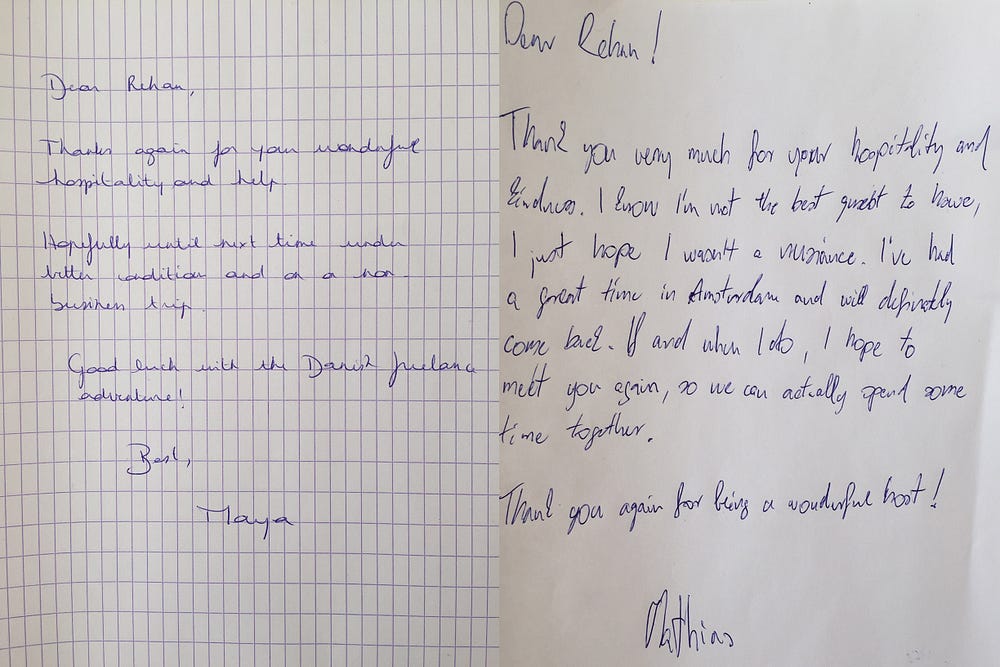 Dear Rehan,
Thanks again for your wonderful
hospitality and help.
Hopefully until next time under
better condition and on a non-
business trip.
Good luck with the Danish freelance
adventure!
Best,
Maya
Dear Rehan!
Thank you very much for your hospitality and
kindness. I know I'm not the best guest to have,
I just hope I wasn't a nuisance. I've had
a great time in Amsterdam and will definetly
come back. If and when I do, I hope to
meet you again, so we can actually spend some
time together.
Thank you again for being a wonderful host!
Mathias